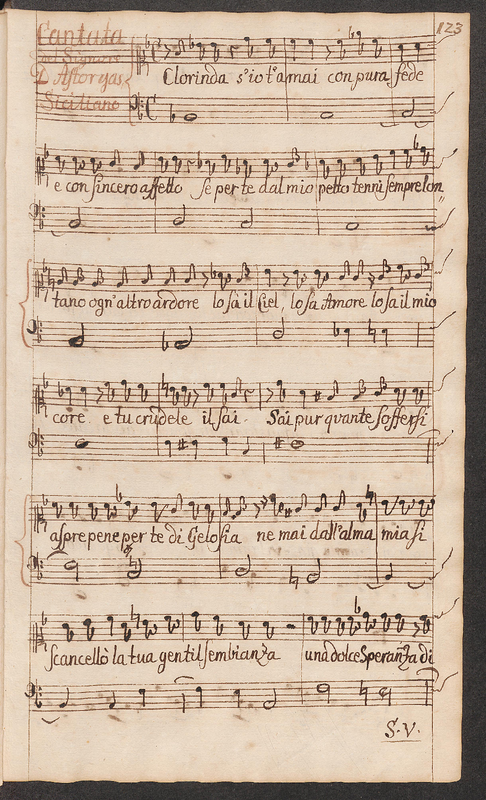 123
Cantata
del Signore
D'Astorgas
Siciliano
Clorinda s'io t'amai con pura fede
e con sincero affetto se per te dal mio petto tenni sempre lon
tano ogn'altro ardore lo sà il Ciel, lo sa Amore lo sa il mio
core e tu crudele il sai. Sai pur qvante soffersi
aspre pene per te di Gelosia ne mai dall'alma mia si
scancellò la tua gentil sembianza una dolce speranza di
S. V.